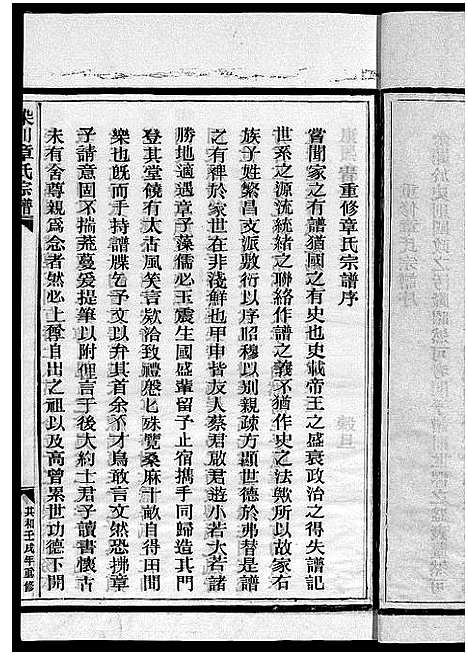 重修章氏宗譜序
嘗聞家之有譜猶國之有史也史載帝王之盛衰政治之得失譜記
世系之源流統緒之聯絡作譜之義不猶作史之法歟所以故家右
族子姓繁昌支派敷衍以序昭穆以别親疎方顯世德於弗替是譜
之有裨於家世在非淺鮮也甲申皆友人蔡君啟君遊小若大若諸
勝地適遇章子藻儒必玉震生國盛輩留予止宿携手同歸造其門
登其堂饒有太古風矣言歡洽致禮慇匕殊覽桑麻十畝自得田間
樂也旣而手持譜牒乞予文以弁其首余不才烏敢言文然恐拂章
子請意固不揣荒蔓爰提筆以附俚言于後大約士君子讀書懷古
未有舍尊親爲念者然必上尊自出之祖以及高曾累世功德下開
梁川章氏宗譜
共和壬戌年重修